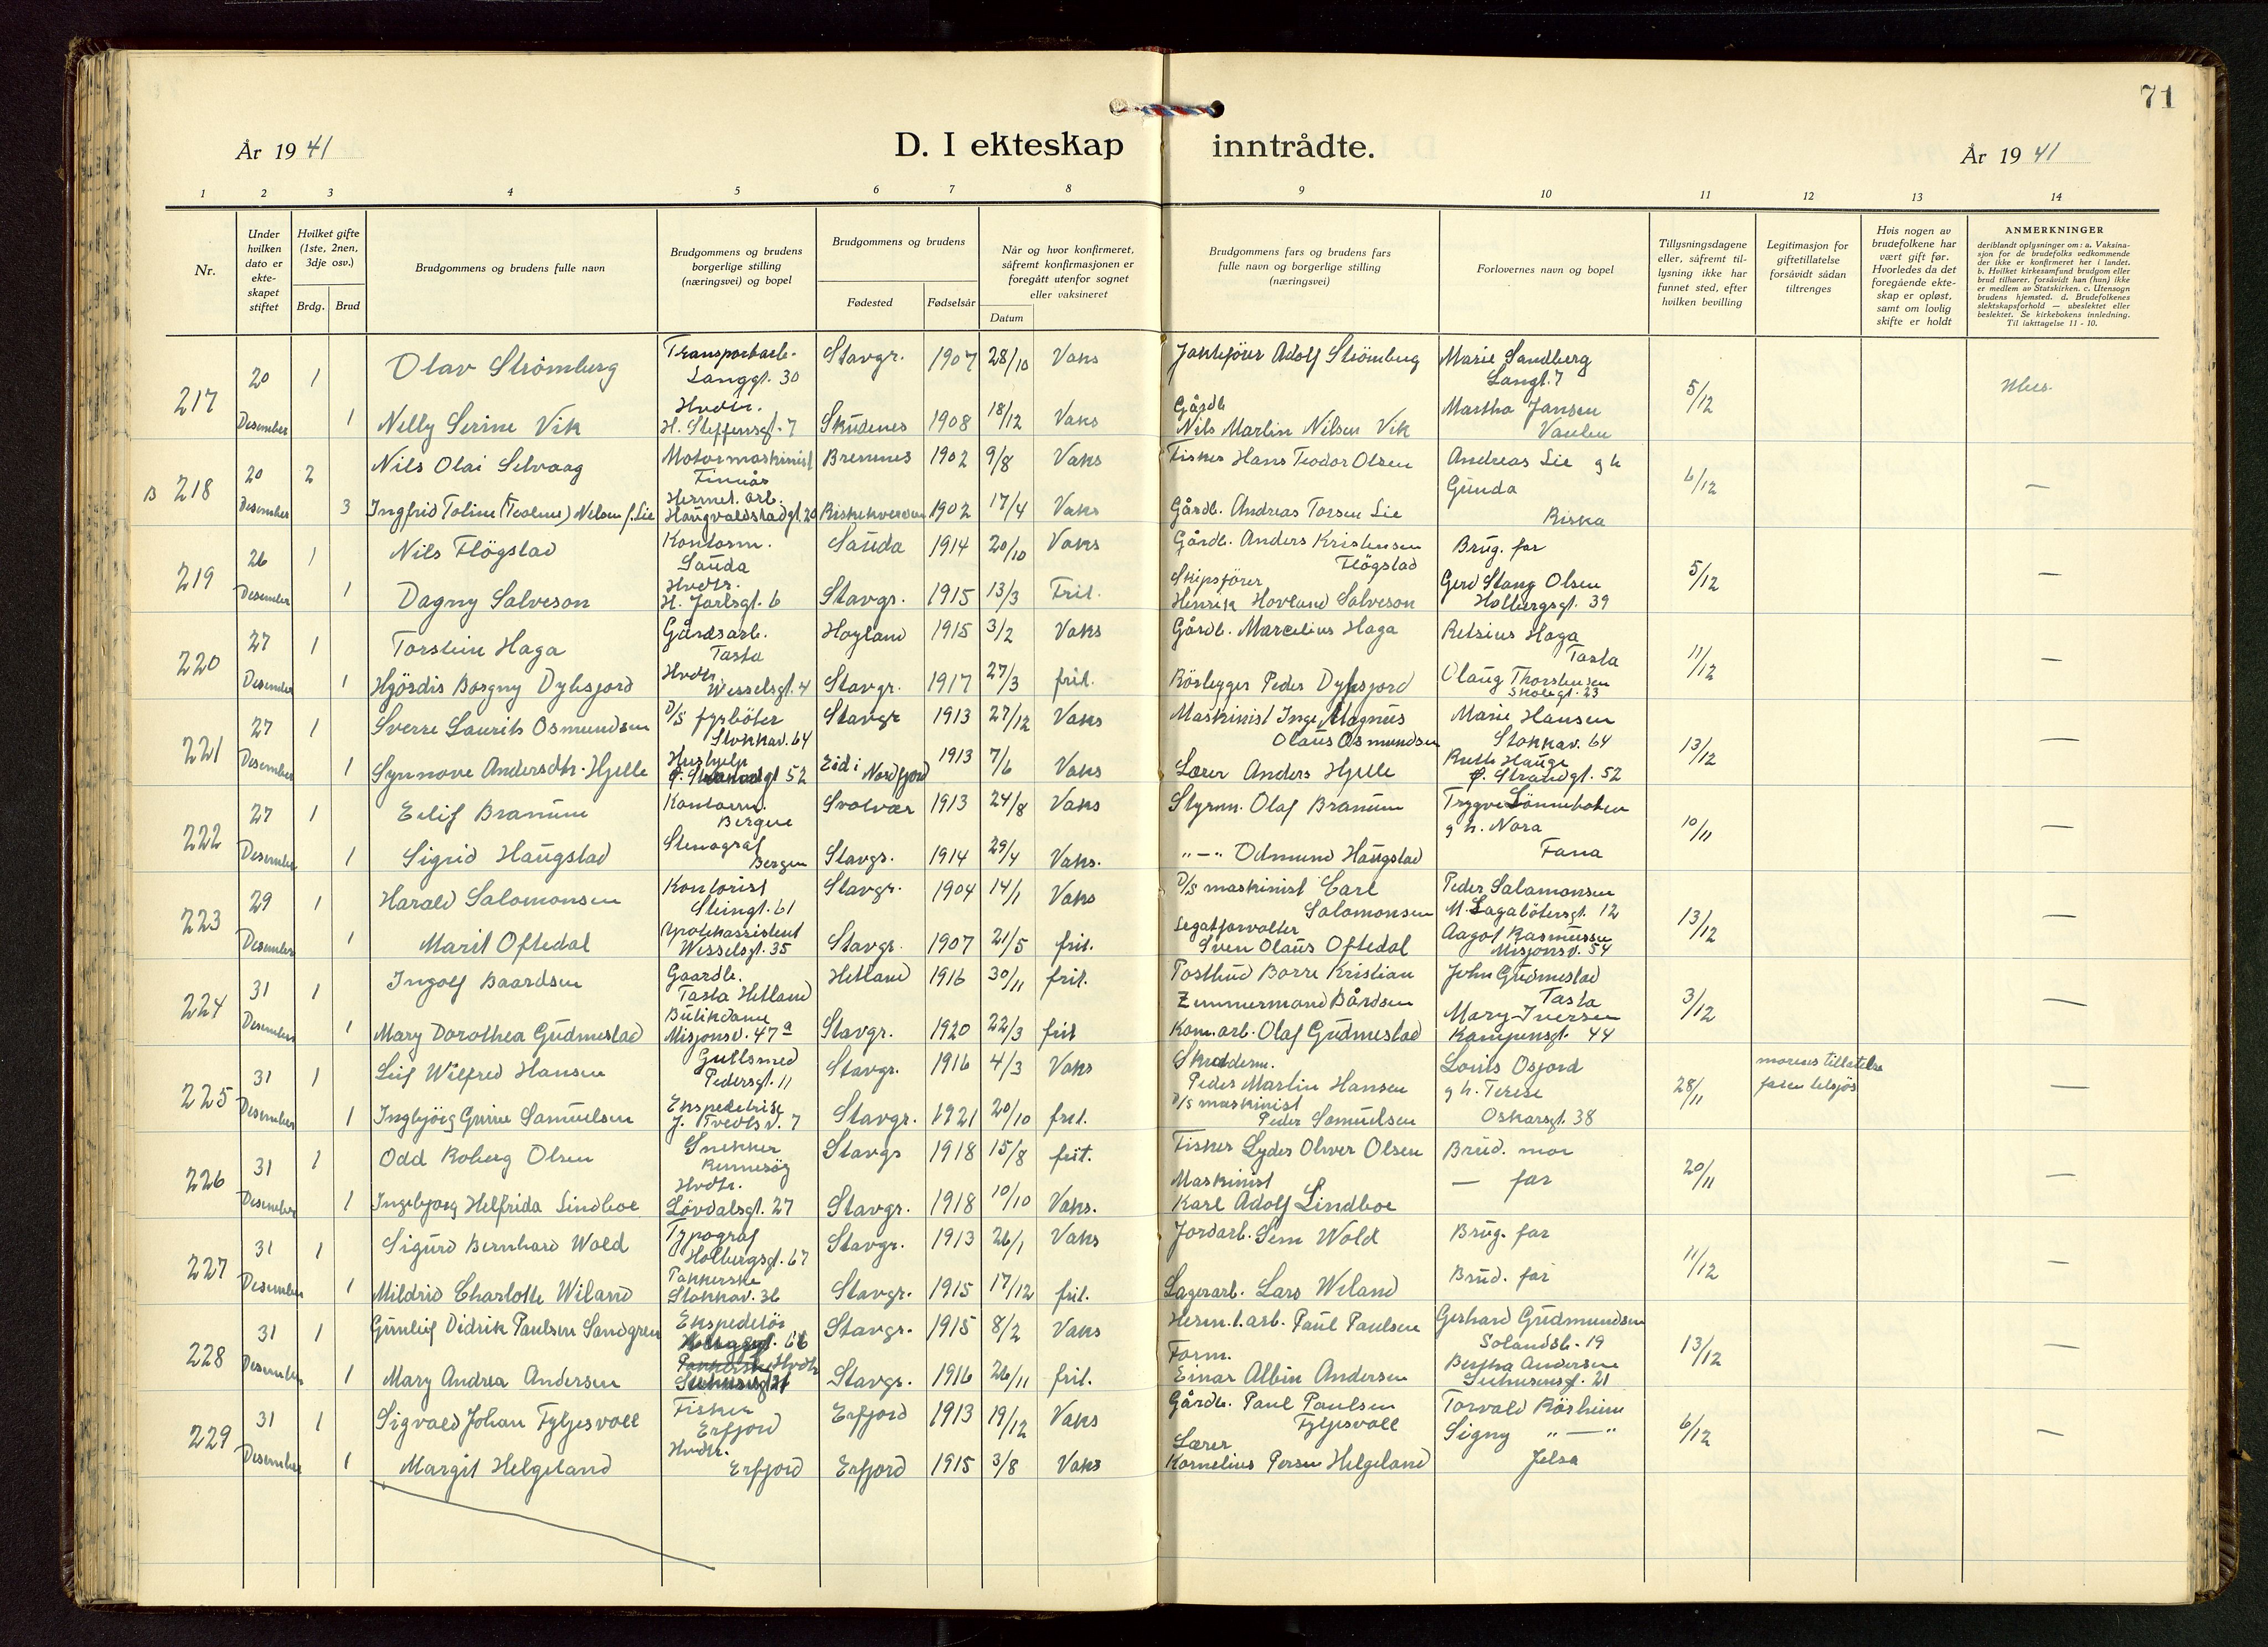 71
År 19 41
D. I ekteskap inntrådte.
År 19 41
1 2 3 4 5 6 7 8 9 10 11 12 13 14
Nr.
Under hvilken dato er ekte-skapet stiftet
Hvilket gifte (1ste, 2nen, 3dje osv.)
Brdg. Brud
Brudgommens og brudens fulle navn
Brudgommens og brudens borgerlige stilling (næringsvei) og bopel
Brudgommens og brudens
Fødested Fødselsår
Når og hvor konfirmeret, såfremt konfirmasjonen er foregått utenfor sognet eller vaksineret
Datum
Brudgommens fars og brudens fars fulle navn og borgerlige stilling (næringsvei)
Forlovernes navn og bopel
Tillysningsdagene eller, såfremt til-lysning ikke har funnet sted, efter hvilken bevilling
Legitimasjon for giftetillatelse forsåvidt sådan tiltrenges
Hvis nogen av brudefolkene har vært gift før. Hvorledes da det foregående ekte-skap er opløst, samt om lovlig skifte er holdt
ANMERKNINGER
deriblandt oplysninger om: a. Vaksina-sjon for de brudefolks vedkommende der ikke er konfirmeret her i landet. b. Hvilket kirkesamfund brudgom eller brud tilhører, forsåvidt han (hun) ikke er medlem av Statskirken. c. Utensogn brudens hjemsted. d. Brudefolkenes slektskapsforhold — ubeslektet eller beslektet. Se kirkebokens innledning. Til iakttagelse 11 - 10.
217 20 Desember 1 Olav Strömberg Transportarb. Langgt. 30 Stavgr. 1907 28/10 Vaks Adolf Strömberg Marie Sandberg Langt. 7 5/12
1 Nelly Serine Vik Hvdtr. H. Steffensgt. 7 Skudenes 1908 18/12 Vaks Gårdb Nils Martin Nilsen Vik Martha Jansen Vaulen
B 218 20 Desember 2 Nils Olai Selvaag Motormaskinist Finnås Bremnes 1902 9/8 Vaks Fisker Hans Teodor Olsen Andreas Lie g h Gunda 6/12 —
3 Ingfrid Toline (Teoline) Nelson f. Lie Hermet. arb. Haugvaldstadgt. 20 1902 17/4 Vaks Gårdb. Andreas Torsen Lie Riska
219 26 Desember 1 Nils Flögstad Kontorm. Sauda Sauda 1914 20/10 Vaks Gårdb. Anders Kristensen Flögstad Brug. far 5/12 —
1 Dagny Salveson Hvdtr. H. Jarlsgt. 6 Stavgr. 1915 13/3 Frit. Skipsförer Henrik Hovland Salveson Gerd Stang Olsen Holbergsgt. 39
220 27 Desember 1 Torstein Haga Gårdsarb. Tasta Høyland 1915 3/2 Vaks Gårdb. Marcelius Haga Retsius Haga Tasta 11/12 —
1 Hjördis Borgny Dybsjord Hvdtr Wesselsgt. 4 Stavgr. 1917 27/3 frit. Rörlegger Peder Dybsjord Olaug Thorstensen Skolegt. 23
221 27 Desember 1 Sverre Laurits Osmundsen D/S fyrböter Stokkav. 64 Stavgr 1913 27/12 Vaks Maskinist Inge Magnus Olaus Osmundsen Marie Hansen Stokkav. 64 13/12 —
1 Synnove Andersdtr. Hjelle Hushjelp Ø. Strandgt 52 Eid i Nordfjord 1913 7/6 Vaks Lærer Anders Hjelle Ruth Hauge Ø. Strandgt. 52
222 27 Desember 1 Eilif Branum Kontorm. Bergen Svolvær 1913 24/8 Vaks Styrm. Olaf Branum Trygve g h. Nora 10/11 —
1 Sigrid Haugstad Stenograf Bergen Stavgr. 1914 29/4 Vaks. "—" Odmund Haugstad Fana
223 29 Desember 1 Harald Salomonsen Kontorist Steingt. 61 Stavgr. 1904 14/1 Vaks D/S maskinist Carl Salomonsen Peder Salomonsen M. Lagabötersgt. 12 13/12 —
1 Marit Oftedal Apotekassistent Wesselsgt. 35 Stavgr. 1907 21/5 frit. Legatforvalter Sven Olaus Oftedal Aagot Rasmussen Misjonsv. 54
224 31 Desember 1 Ingolf Baardsen Gaardb. Tasta Hetland Hetland 1916 30/11 frit. Postbud Borre Kristian Zimmermand Bårdsen John Gudmestad Tasta 3/12 —
1 Mary Dorothea Gudmestad Butikdame Misjonsv. 47a Stavgr. 1920 22/3 frit Kom. arb. Olaf Gudmestad Mary Iversen Kampensgt. 44
225 31 Desember 1 Leif Wilfred Hansen Gullsmed Pedersgt. 11 Stavgr. 1916 4/3 Vaks Skredderm. Peder Martin Hansen Louis Osjord g h. Terese 28/11 morens tillatelse faren tilsjös —
1 Ingbjörg Gurine Samuelsen Ekspeditrise J. Tvedtsv. 7 Stavgr. 1921 20/10 frit. D/S maskinist Peder Samuelsen Oskarsgt. 38
226 31 Desember 1 Odd Roberg Olsen Snekker Rennesöy Stavgr 1918 15/8 frit. Fisker Lyder Oliver Olsen Brud. mor 20/11 —
1 Ingebjorg Helfrida Lindboe Hvdtr. Lövdalsgt. 27 Stavgr. 1918 10/10 Vaks. Maskinist Karl Adolf Lindboe — far
227 31 Desember 1 Sigurd Bernhard Wold Typograf Holbergsgt. 67 Stavgr. 1913 26/1 Vaks Jordarb. Sem Wold Brug. far 11/12 —
1 Mildrid Charlotte Wiland Pakkerske Stokkav. 36 Stavgr. 1915 17/12 frit. Lagerarb. Lars Wiland Brud. far
228 31 Desember 1 Gunleif Didrik Paulsen Sandgren Ekspeditör 66 Stavgr. 1915 8/2 Vaks Herm. t. arb. Paul Paulsen Gerhard Gudmundsen Solandsb. 19 13/12 —
1 Mary Andrea Andersen Pakkerske Hvdtr 21 Stavgr. 1916 26/11 frit. Form. Einar Albin Andersen Bertha Andersen Suhusensgt. 21
229 31 Desember 1 Sigvald Johan Fyljesvoll Fisker Erfjord Erfjord 1913 19/12 Vaks Gårdb. Paul Paulsen Fyljesvoll Torvald Rörheim 6/12 —
1 Margit Helgeland Hvdtr. Erfjord Erfjord 1915 3/8 Vaks Lærer Kornelius Persen Helgeland Signy "—" Jelsa